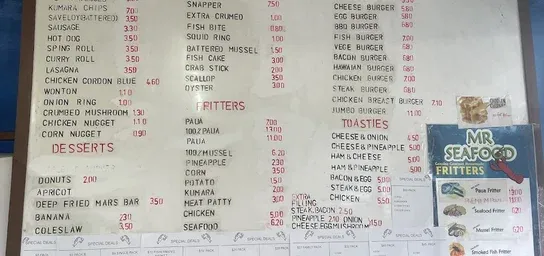 KUMARA CHIPS 7.00
SAVELOY(BATTERED) 3.30
SAUSAGE 3.30
HOT DOG 3.50
SPING ROLL 3.50
CURRY ROLL 3.50
LASAGNA 3.50
CHICKEN CORDON BLUE 4.60
WONTON 1.10
ONION RING 1.00
CRUMBED MUSHROOM 1.30
CHICKEN NUGGET 1.10
CORN NUGGET 0.90
DESSERTS
DONUTS 2.00
APRICOT
DEEP FRIED MARS BAR 3.50
BANANA 2.30
COLESLAW 3.50
SNAPPER 7.50
EXTRA CRUMED 1.00
FISH BITE 0.80
SQUID RING 1.00
BATTERED MUSSEL 1.50
FISH CAKE 3.00
CRAB STICK 2.00
SCALLOP 3.50
OYSTER 3.00
FRITTERS
PAUA 7.00
100% PAUA 11.00
100% MUSSEL 6.20
PINEAPPLE 2.30
CORN 3.50
POTATO 1.50
KUMARA 2.00
MEAT PATTY 3.00
CHICKEN 5.00
SEAFOOD 6.20
CHEESE BURGER
EGG BURGER 5.80
BBQ BURGER 5.80
FISH BURGER 7.00
VEGE BURGER 5.80
BACON BURGER 6.80
HAWAIIAN BURGER 6.80
CHICKEN BURGER 7.00
STEAK BURGER 6.80
CHICKEN BREAST BURGER 7.10
JUMBO BURGER 11.00
TOASTIES
CHEESE & ONION 4.50
CHEESE & PINEAPPLE 5.00
HAM & CHEESE 5.00
HAM & PINEAPPLE 5.00
BACON & EGG 5.00
STEAK & EGG 5.00
CHICKEN 5.00
EXTRA
FILLING
STEAK, BACON 2.50
PINEAPPLE 2.10 ONION
CHEESE, EGG MUSHROOM 1.50
MR
SEAFOOD
FRITTERS
Paua Fritter
Seafood Fritter 6.20
Mussel Fritter 6.20
Smoked Fish Fritter
SPECIAL DEALS
SPECIAL DEALS
SPECIAL DEALS
SPECIAL DEALS
SPECIAL DEALS